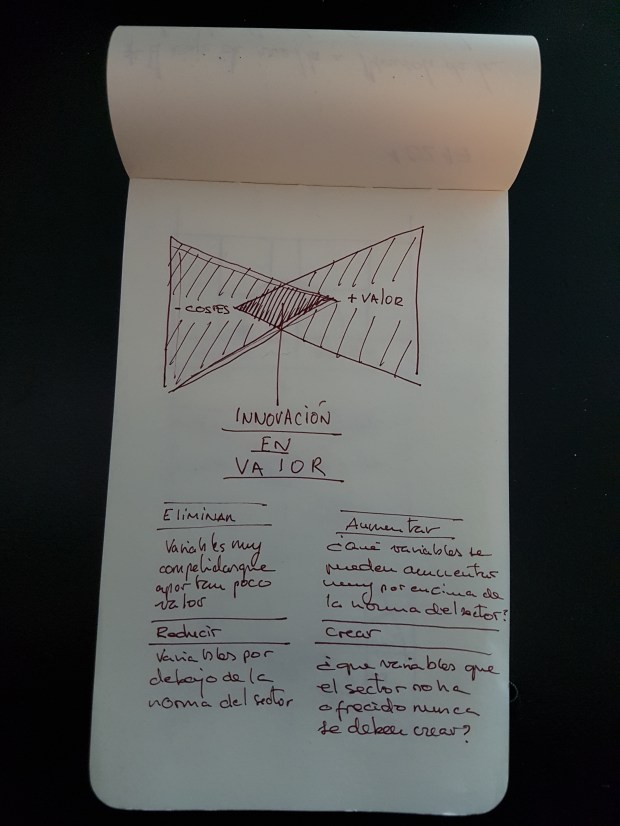 - COSTES
+ VALOR
INNOVACIÓN
EN
VALOR
Eliminar
Variables muy
competidas que
aportan poco
valor
Aumentar
¿Qué variables se
pueden aumentar
muy por encima de
la norma del sector?
Reducir
Variables por
debajo de la
norma del sector
Crear
¿que variables que
el sector no ha
ofrecido nunca
se deben crear?